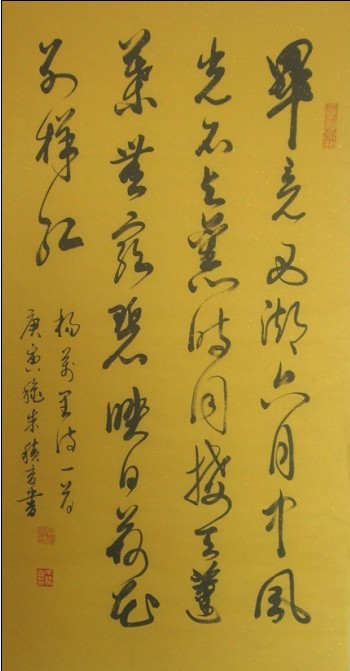 畢竟西湖六月中風
光不与時同接天蓮
葉無窮碧映日荷花
别樣紅
楊萬里詩一首
庚寅朱書